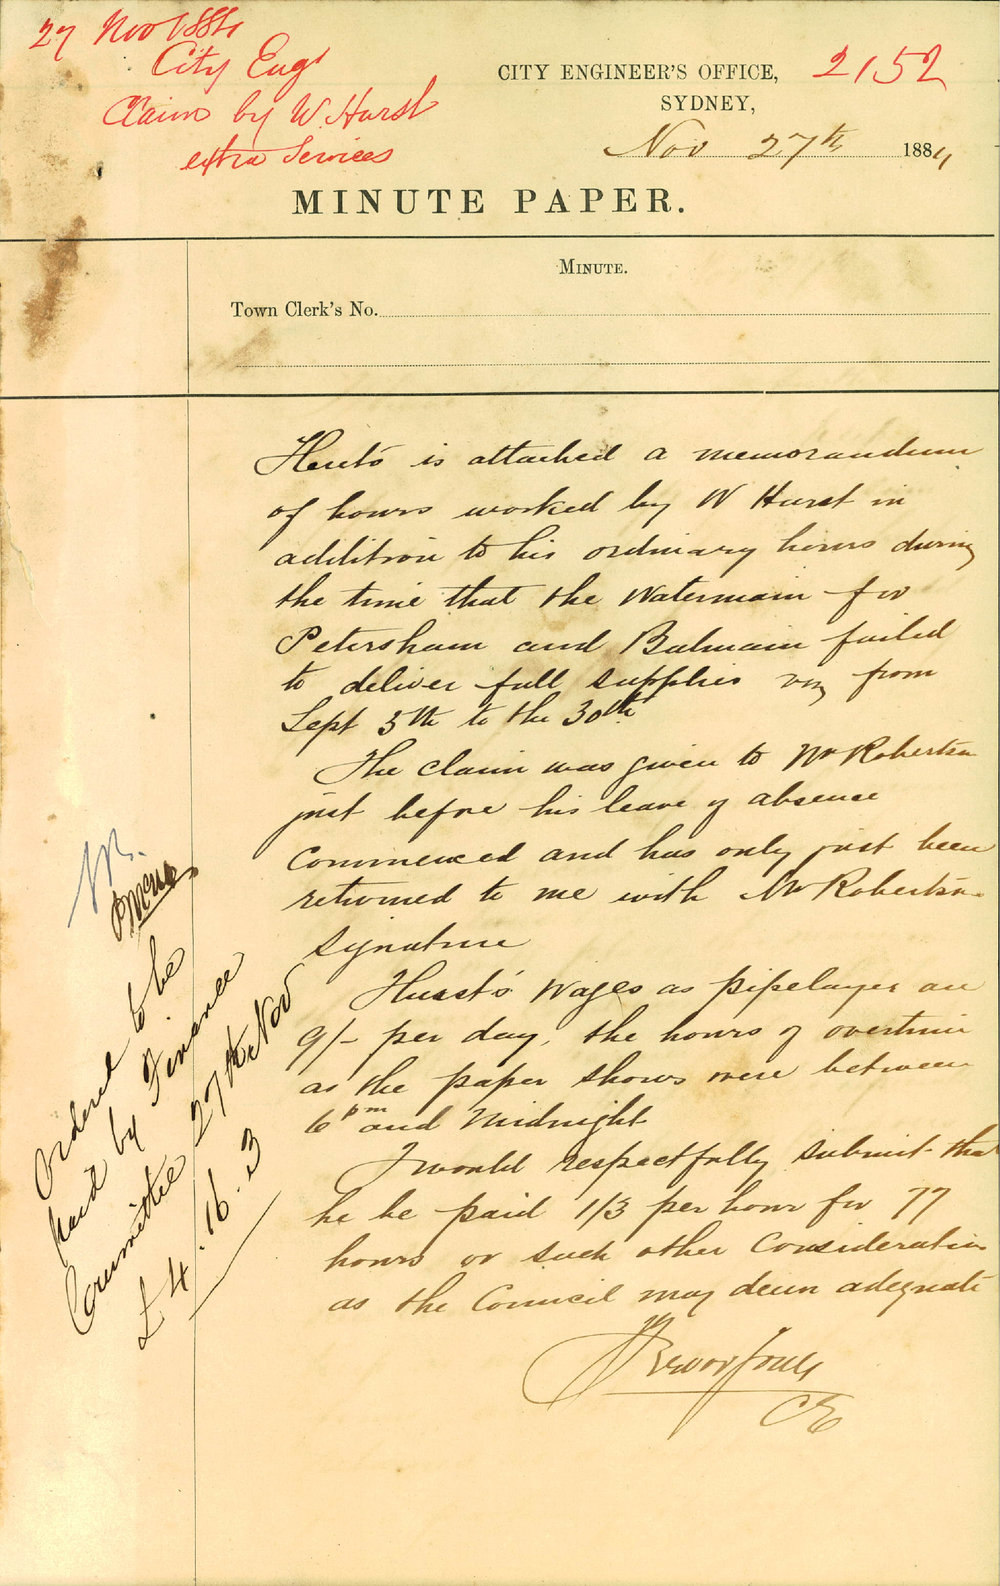 27 Nov 1884
City Engr
Claim by W. Hurst
extra Services
CITY ENGINEER'S OFFICE,
2152
SYDNEY,
Nov 27th 1884
MINUTE PAPER.
MINUTE.
Town Clerk's No.
Hereto is attached a memorandum
of hours worked by W Hurst in
addition to his ordinary hours during
the time that the Watermain for
Petersham and Balmain failed
to deliver full supplies viz from
Sept 5th to the 30th
The claim was given to Mr Robertson
just before his leave of absence
commenced and has only just been
returned to me with Mr Robertson
signature
Hurst's wages as pipelayer are
9/- per day, the hours of overtime
as the paper shows were between
6 pm and Midnight
I would respectfully submit that
he be paid 1/3 per hour for 77
hours or such other consideration
as the Council may deem adequate
CE
Ordered to be
paid by Finance
Committee 27th Nov
£4.16.3